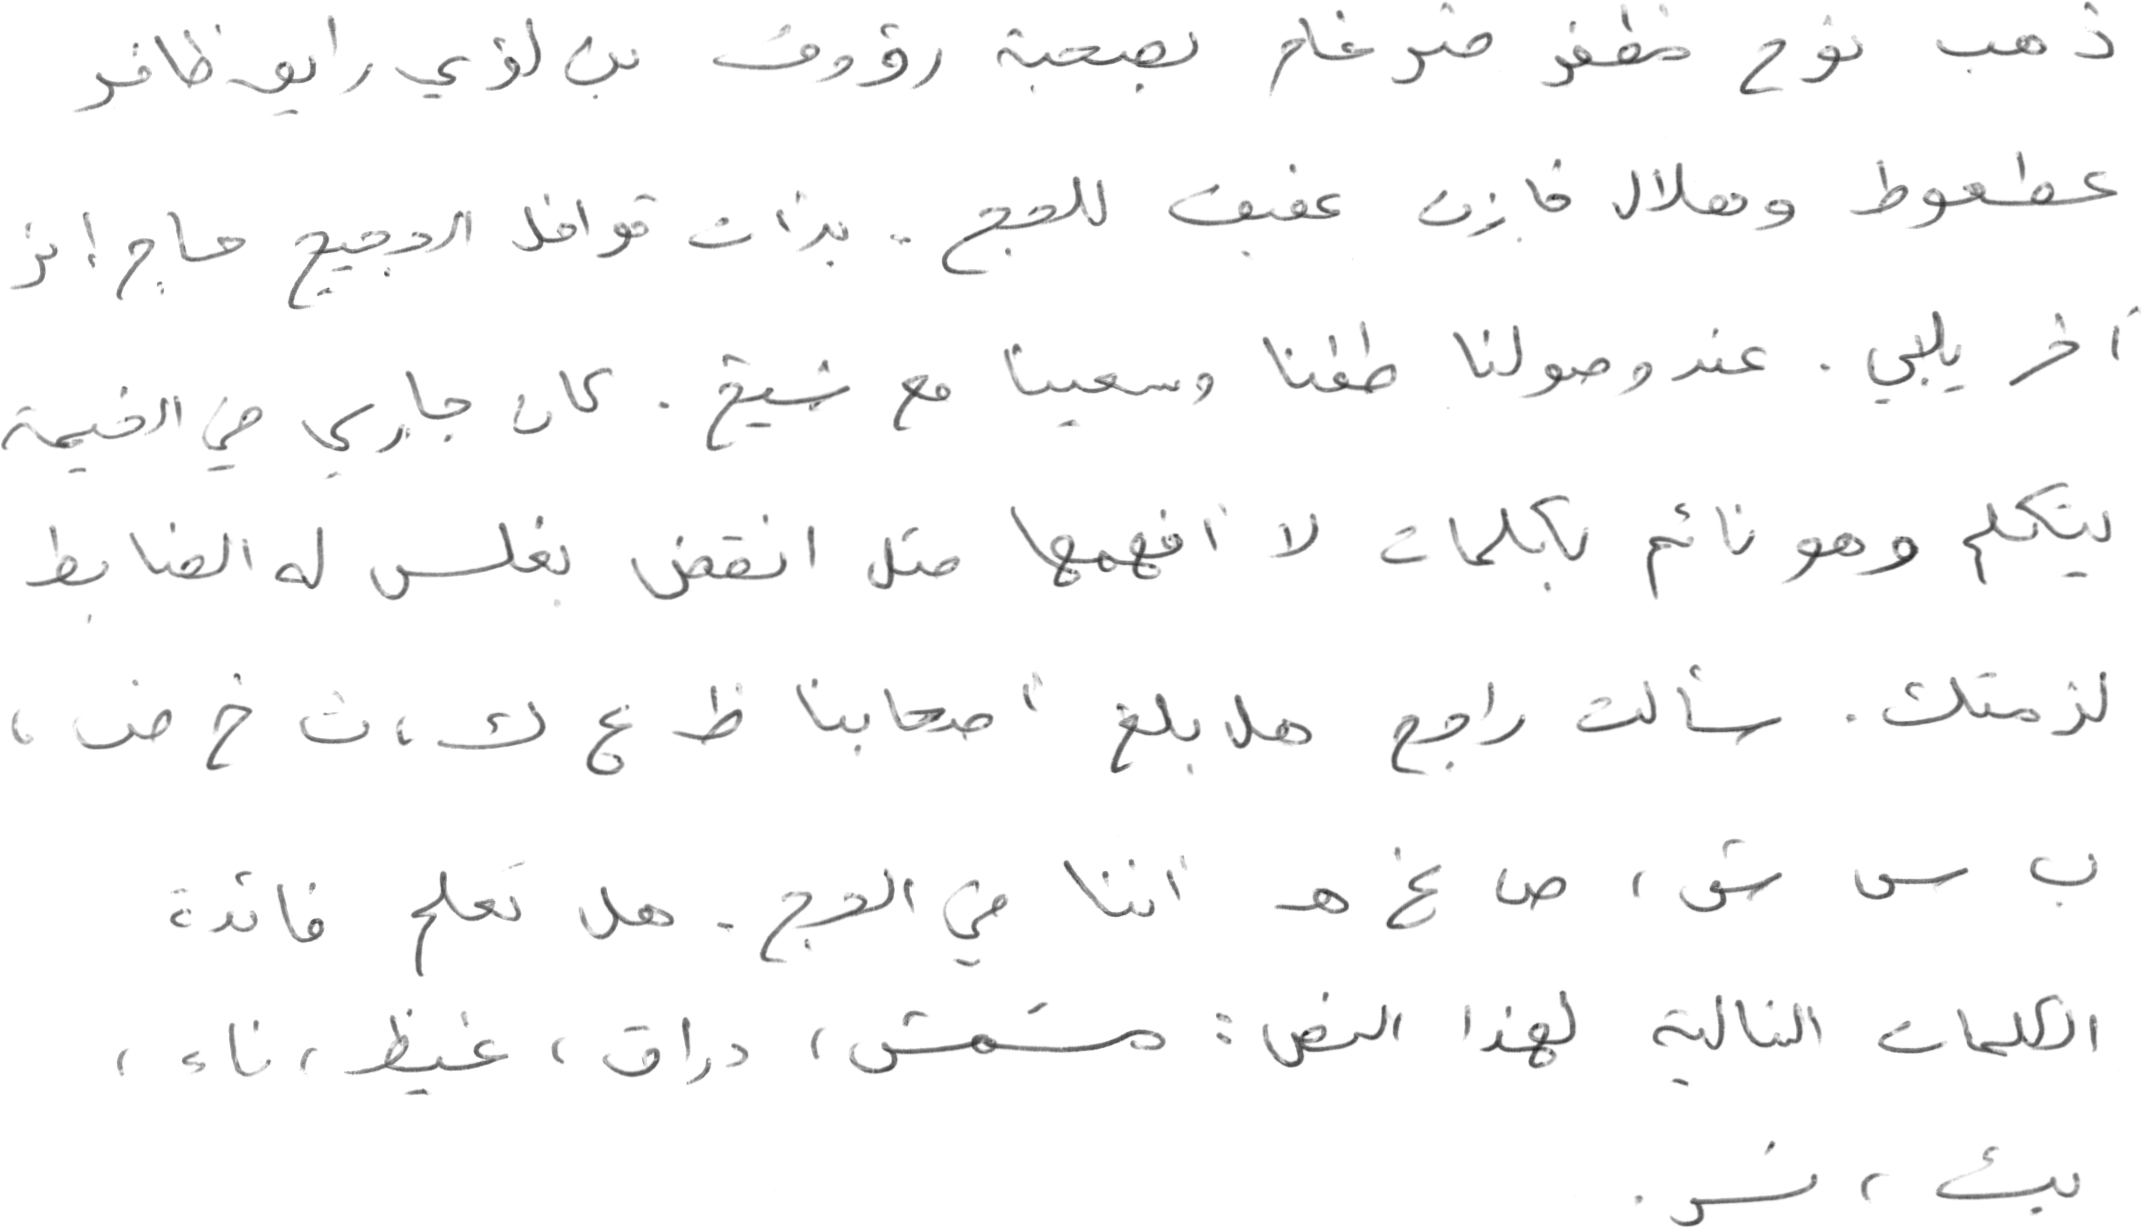 ذهب نوح مظفر ضرغام بصحبة رؤوف بن لؤي رايق ظافر
عطعوط وهلال خازن عفيف للحج . بدأت قوافل الحجيج حاج إثر
آخر يلبي . عند وصولنا طفنا وسعينا مع شيخ . كان جاري في الخيمة
يتكلم وهو نائم بكلمات لا أفهمها مثل انقض بغلس له الضابط
لزمتك . سألت راجح هل بلغ أصحابنا ظ ع ك ، ث خ ض ،
ب س ش ، ص غ هـ أننا في الحج . هل تعلم فائدة
الكلمات التالية لهذا النص : مشمش ، دراق ، غيظ ، ناء ،
بيئ ، نسر .